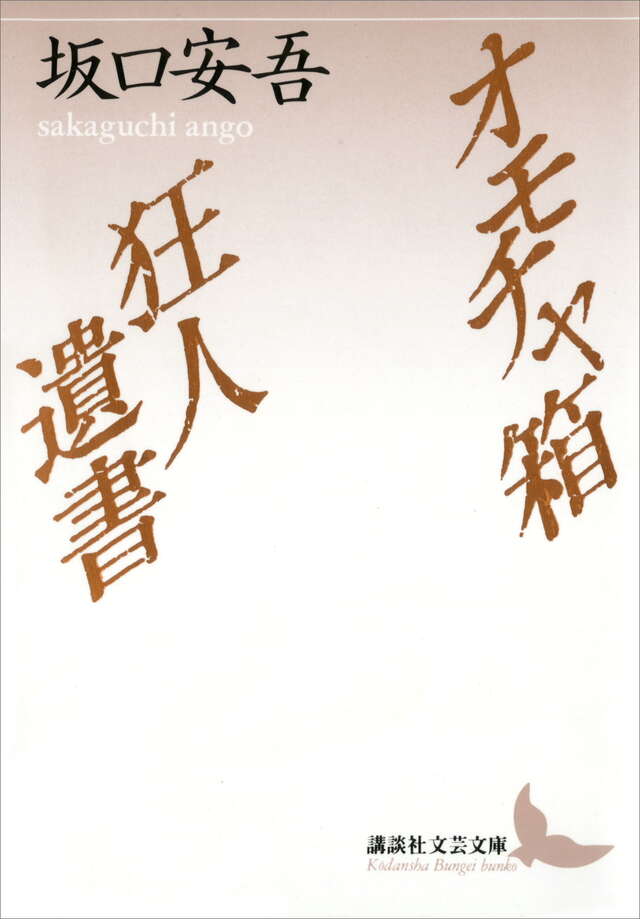 坂口安吾
sakaguchi ango
オモチャ箱
狂人遺書
講談社文芸文庫
Kōdansha Bungei bunko